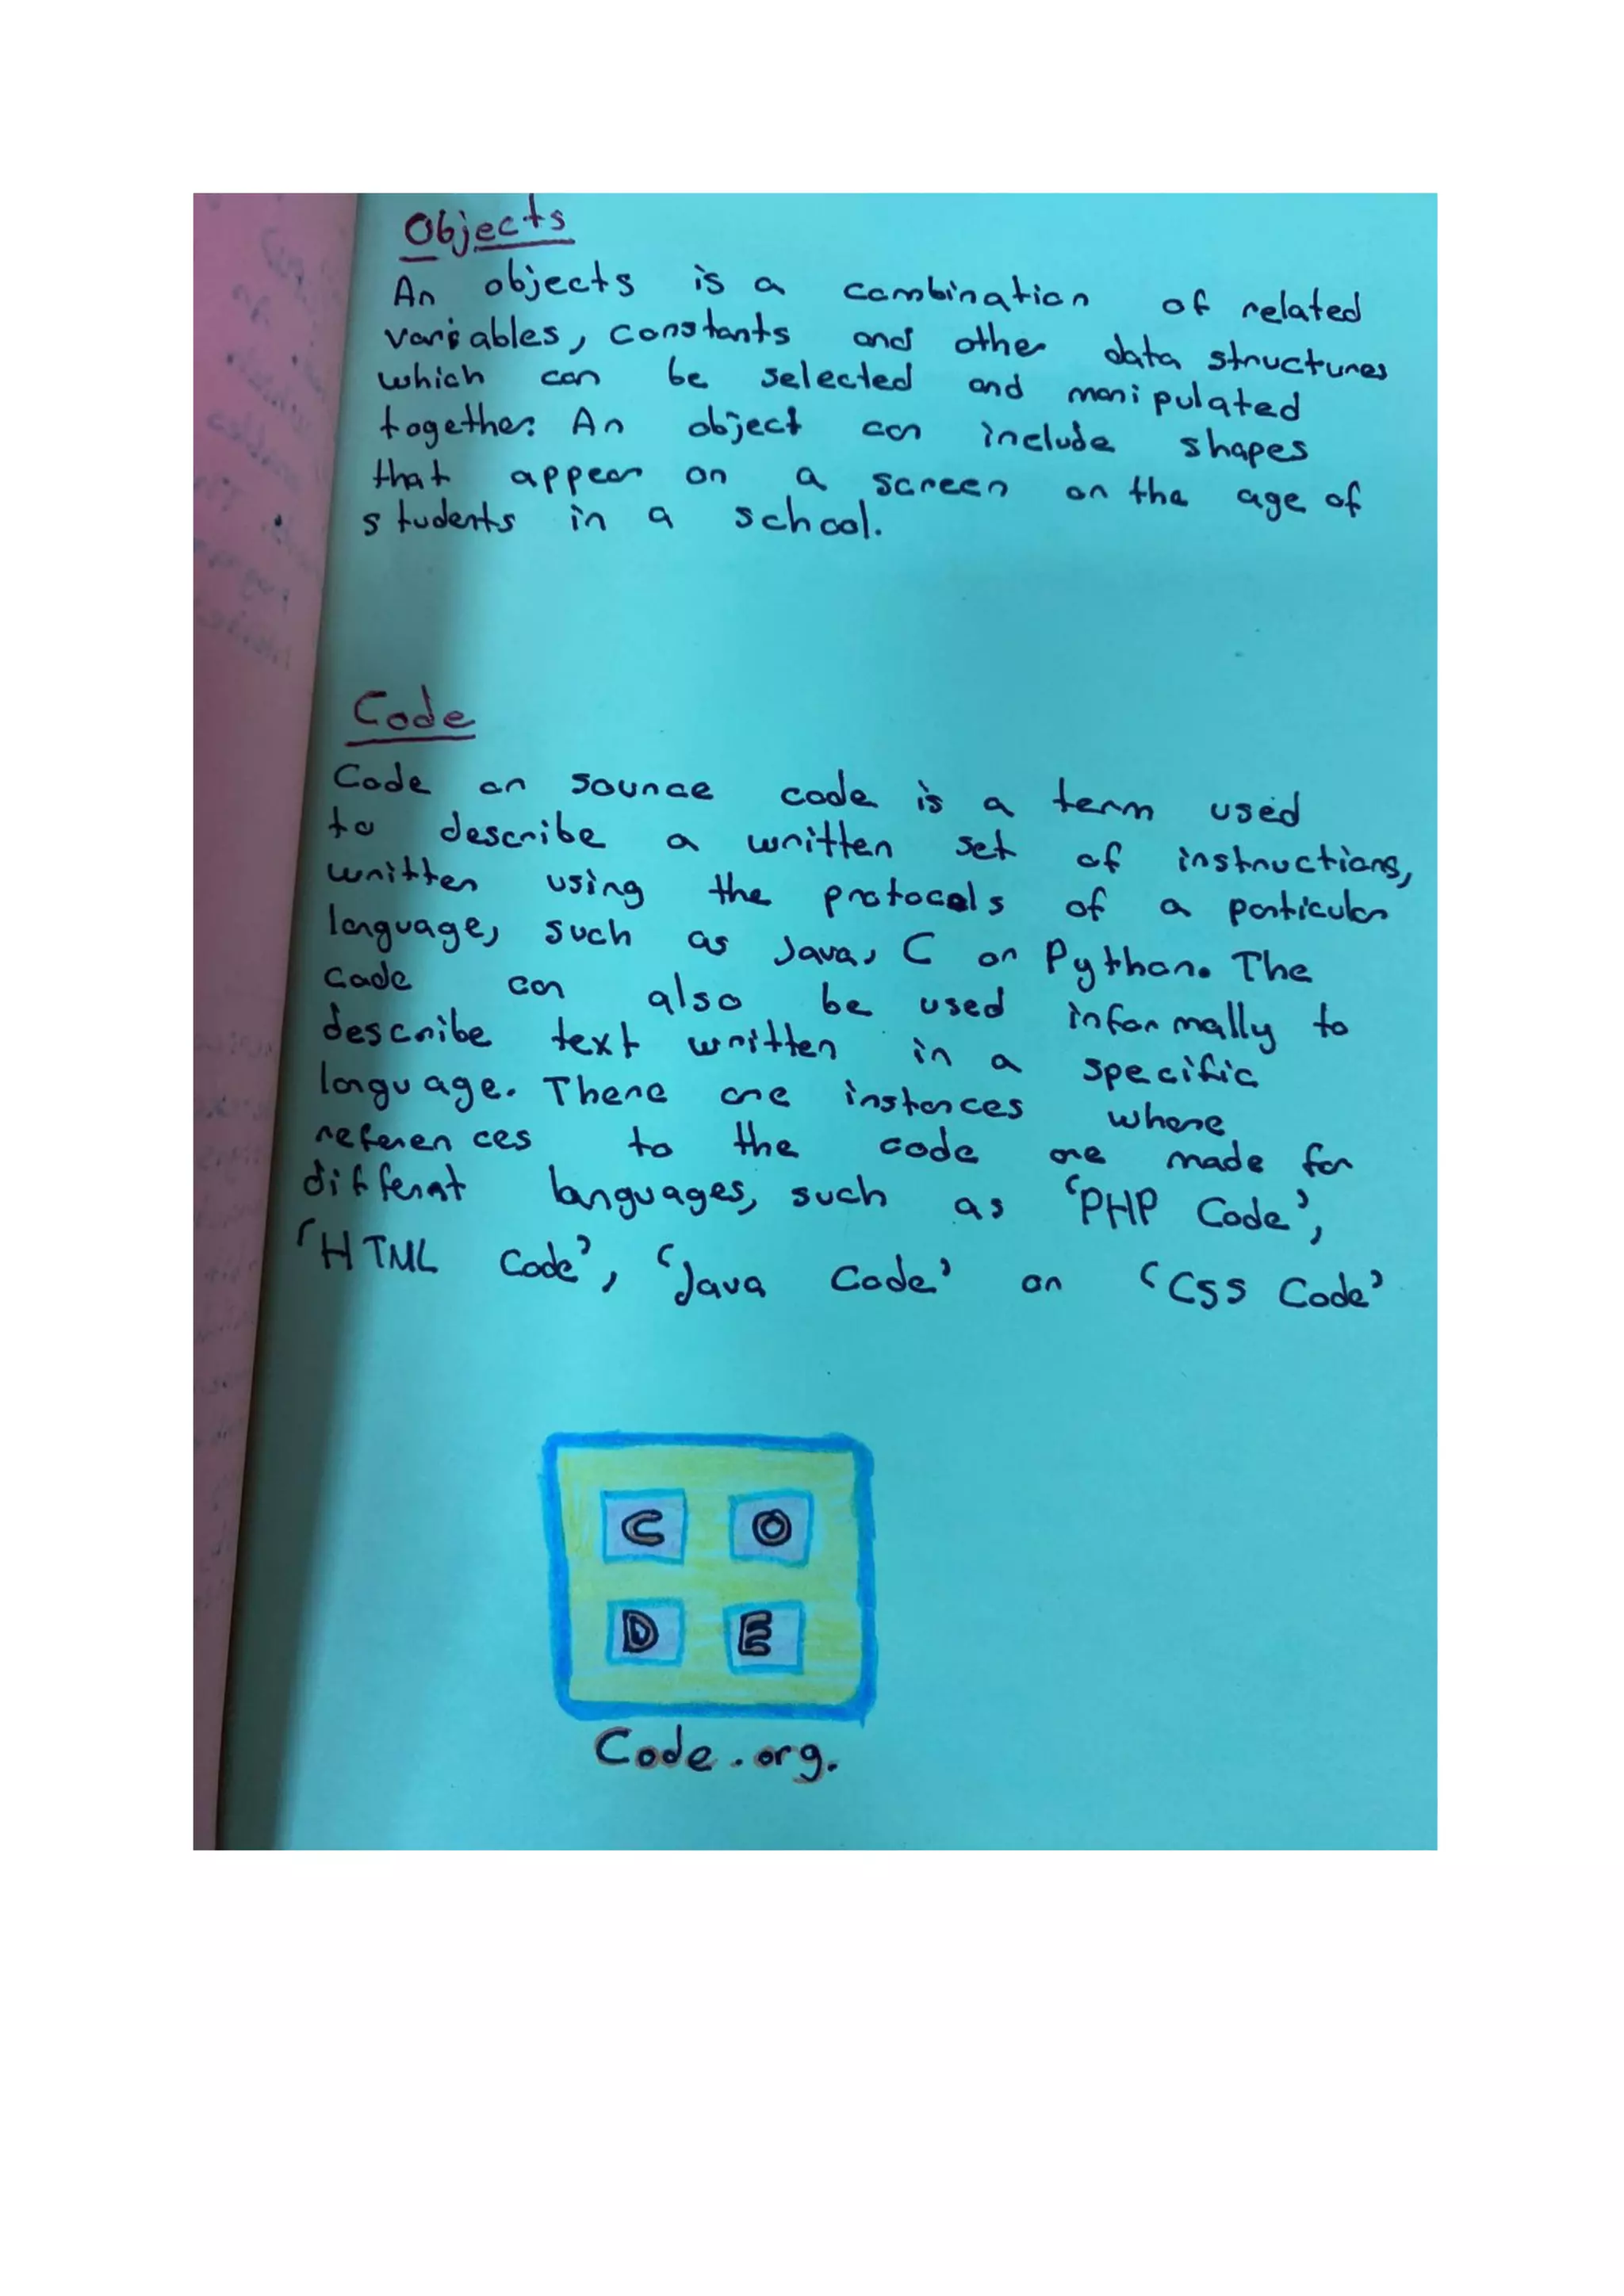 Objects
An objects is a combination of related
variables, constants and other data structures
which can be selected and manipulated
together. An object can include shapes
that appear on a screen or the age of
students in a school.
Code
Code or source code is a term used
to describe a written set of instructions,
written using the protocols of a particular
language, such as Java, C or Python. The
code can also be used informally to
describe text written in a specific
language. There are instances where
references to the code are made for
differnt languages, such as 'PHP Code',
'HTML Code', 'Java Code' or 'CSS Code'
C O
D E
Code.org.